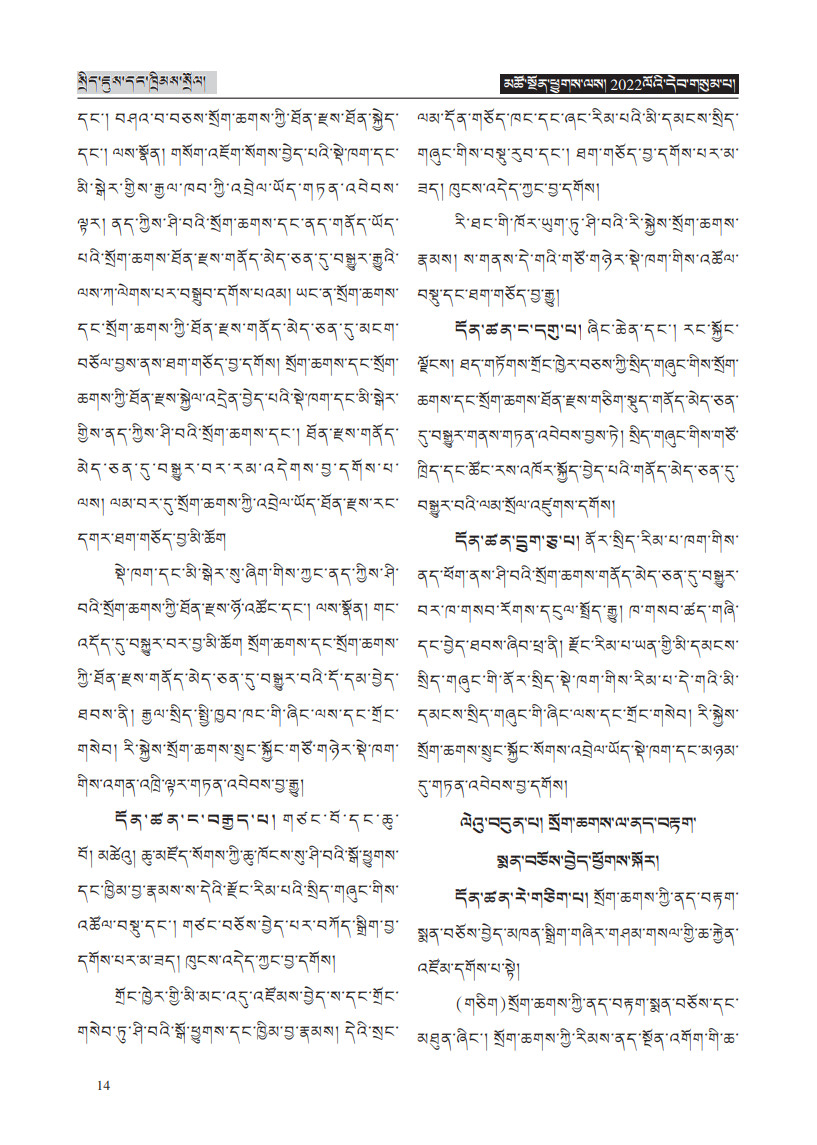 སྲིད་ཇུས་དང་ཁྲིམས་སྲོལ།
མཚོ་སྔོན་ཕྱུགས་ལས། 2022ལོའི་དེབ་གསུམ་པ།
དང་། བཤའ་བ་བཅས་སྲོག་ཆགས་ཀྱི་ཐོན་རྫས་ཐོན་སྐྱེད་
དང་། ལས་སྣོན། གསོག་འཇོག་སོགས་བྱེད་པའི་སྡེ་ཁག་དང་
མི་སྒེར་གྱིས་རྒྱལ་ཁབ་ཀྱི་འབྲེལ་ཡོད་གཏན་འབེབས་
ལྟར། ནད་ཀྱིས་ཤི་བའི་སྲོག་ཆགས་དང་ནད་གནོད་ཡོད་
པའི་སྲོག་ཆགས་ཐོན་རྫས་གནོད་མེད་ཅན་དུ་བསྒྱུར་རྒྱུའི་
ལས་ཀ་ལེགས་པར་བསྒྲུབ་དགོས་པའམ། ཡང་ན་སྲོག་ཆགས་
དང་སྲོག་ཆགས་ཀྱི་ཐོན་རྫས་གནོད་མེད་ཅན་དུ་མངག་
བཅོལ་བྱས་ནས་ཐག་གཅོད་བྱ་དགོས། སྲོག་ཆགས་དང་སྲོག་
ཆགས་ཀྱི་ཐོན་རྫས་སྐྱེལ་འདྲེན་བྱེད་པའི་སྡེ་ཁག་དང་མི་སྒེར་
གྱིས་ནད་ཀྱིས་ཤི་བའི་སྲོག་ཆགས་དང་། ཐོན་རྫས་གནོད་
མེད་ཅན་དུ་བསྒྱུར་བར་རམ་འདེགས་བྱ་དགོས་པ་
ལས། ལམ་བར་དུ་སྲོག་ཆགས་ཀྱི་འབྲེལ་ཡོད་ཐོན་རྫས་རང་
དགར་ཐག་གཅོད་བྱ་མི་ཆོག
སྡེ་ཁག་དང་མི་སྒེར་སུ་ཞིག་གིས་ཀྱང་ནད་ཀྱིས་ཤི་
བའི་སྲོག་ཆགས་ཀྱི་ཐོན་རྫས་ཉོ་འཚོང་དང་། ལས་སྣོན། གང་
འདོད་དུ་བསྐྱུར་བར་བྱ་མི་ཆོག སྲོག་ཆགས་དང་སྲོག་ཆགས་
ཀྱི་ཐོན་རྫས་གནོད་མེད་ཅན་དུ་བསྒྱུར་བའི་དོ་དམ་བྱེད་
ཐབས་ནི། རྒྱལ་སྲིད་སྤྱི་ཁྱབ་ཁང་གི་ཞིང་ལས་དང་གྲོང་
གསེབ། རི་སྐྱེས་སྲོག་ཆགས་སྲུང་སྐྱོང་གཙོ་གཉེར་སྡེ་ཁག་
གིས་འགན་འཁྲི་ལྟར་གཏན་འབེབས་བྱ་རྒྱུ།
དོན་ཚན་ང་བརྒྱད་པ། གཙང་བོ་དང་ཆུ་
བོ། མཚེའུ། ཆུ་མཛོད་སོགས་ཀྱི་ཆུ་ཁོངས་སུ་ཤི་བའི་སྒོ་ཕྱུགས་
དང་ཁྱིམ་བྱ་རྣམས་ས་དེའི་རྫོང་རིམ་པའི་སྲིད་གཞུང་གིས་
འཚོལ་བསྡུ་དང་། གཙང་བཅོས་བྱེད་པར་བཀོད་སྒྲིག་བྱ་
དགོས་པར་མ་ཟད། ཁུངས་འདེད་ཀྱང་བྱ་དགོས།
གྲོང་ཁྱེར་གྱི་མི་མང་འདུ་འཛོམས་བྱེད་ས་དང་གྲོང་
གསེབ་ཏུ་ཤི་བའི་སྒོ་ཕྱུགས་དང་ཁྱིམ་བྱ་རྣམས། དེའི་སྲང་
ལམ་དོན་གཅོད་ཁང་དང་ཞང་རིམ་པའི་མི་དམངས་སྲིད་
གཞུང་གིས་བསྡུ་རུབ་དང་། ཐག་གཅོད་བྱ་དགོས་པར་མ་
ཟད། ཁུངས་འདེད་ཀྱང་བྱ་དགོས།
རི་ཐང་གི་ཁོར་ཡུག་ཏུ་ཤི་བའི་རི་སྐྱེས་སྲོག་ཆགས་
རྣམས། ས་གནས་དེ་གའི་གཙོ་གཉེར་སྡེ་ཁག་གིས་འཚོལ་
བསྡུ་དང་ཐག་གཅོད་བྱ་རྒྱུ།
དོན་ཚན་ང་དགུ་པ། ཞིང་ཆེན་དང་། རང་སྐྱོང་
ལྗོངས། ཐད་གཏོགས་གྲོང་ཁྱེར་བཅས་ཀྱི་སྲིད་གཞུང་གིས་སྲོག་
ཆགས་དང་སྲོག་ཆགས་ཐོན་རྫས་གཅིག་སྡུད་གནོད་མེད་ཅན་
དུ་བསྒྱུར་གནས་གཏན་འབེབས་བྱས་ཏེ། སྲིད་གཞུང་གིས་གཙོ་
ཁྲིད་དང་ཚོང་རས་འཁོར་སྐྱོད་བྱེད་པའི་གནོད་མེད་ཅན་དུ་
བསྒྱུར་བའི་ལམ་སྲོལ་འཛུགས་དགོས།
དོན་ཚན་དྲུག་ཅུ་པ། ནོར་སྲིད་རིམ་པ་ཁག་གིས་
ནད་ཕོག་ནས་ཤི་བའི་སྲོག་ཆགས་གནོད་མེད་ཅན་དུ་བསྒྱུར་
བར་ཁ་གསབ་རོགས་དངུལ་སྤྲོད་རྒྱུ། ཁ་གསབ་ཚད་གཞི་
དང་བྱེད་ཐབས་ཞིབ་ཕྲ་ནི། རྫོང་རིམ་པ་ཡན་གྱི་མི་དམངས་
སྲིད་གཞུང་གི་ནོར་སྲིད་སྡེ་ཁག་གིས་རིམ་པ་དེ་གའི་མི་
དམངས་སྲིད་གཞུང་གི་ཞིང་ལས་དང་གྲོང་གསེབ། རི་སྐྱེས་
སྲོག་ཆགས་སྲུང་སྐྱོང་སོགས་འབྲེལ་ཡོད་སྡེ་ཁག་དང་མཉམ་
དུ་གཏན་འབེབས་བྱ་དགོས།
ལེའུ་བདུན་པ། སྲོག་ཆགས་ལ་ནད་བརྟག་
སྨན་བཅོས་བྱེད་ཕྱོགས་སྐོར།
དོན་ཚན་རེ་གཅིག་པ། སྲོག་ཆགས་ཀྱི་ནད་བརྟག་
སྨན་བཅོས་བྱེད་མཁན་སྒྲིག་གཞིར་གཤམ་གསལ་གྱི་ཆ་རྐྱེན་
འཛོམ་དགོས་པ་སྟེ།
(གཅིག)སྲོག་ཆགས་ཀྱི་ནད་བརྟག་སྨན་བཅོས་དང་
མཐུན་ཞིང་། སྲོག་ཆགས་ཀྱི་རིམས་ནད་སྔོན་འགོག་གི་ཆ་
14